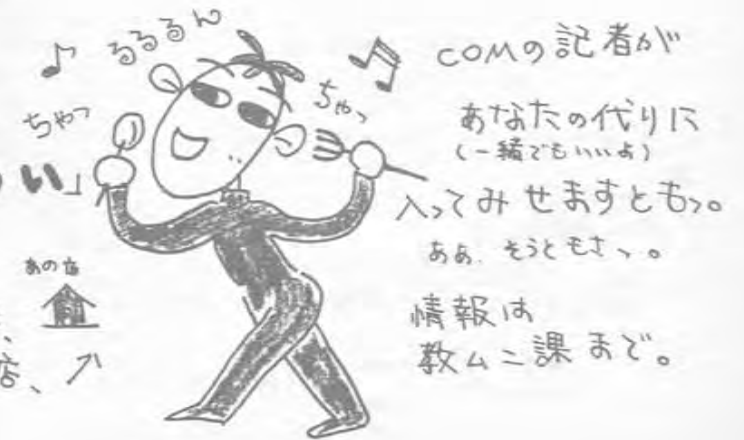 るるるん
ちゃっ
ちゃっ
い」
あの店
、
店、
COMの記者が
あなたの代りに
(一緒でもいいよ)
入ってみせますともっ。
ああ、そうともさっ。
情報は
教ム二課まで。